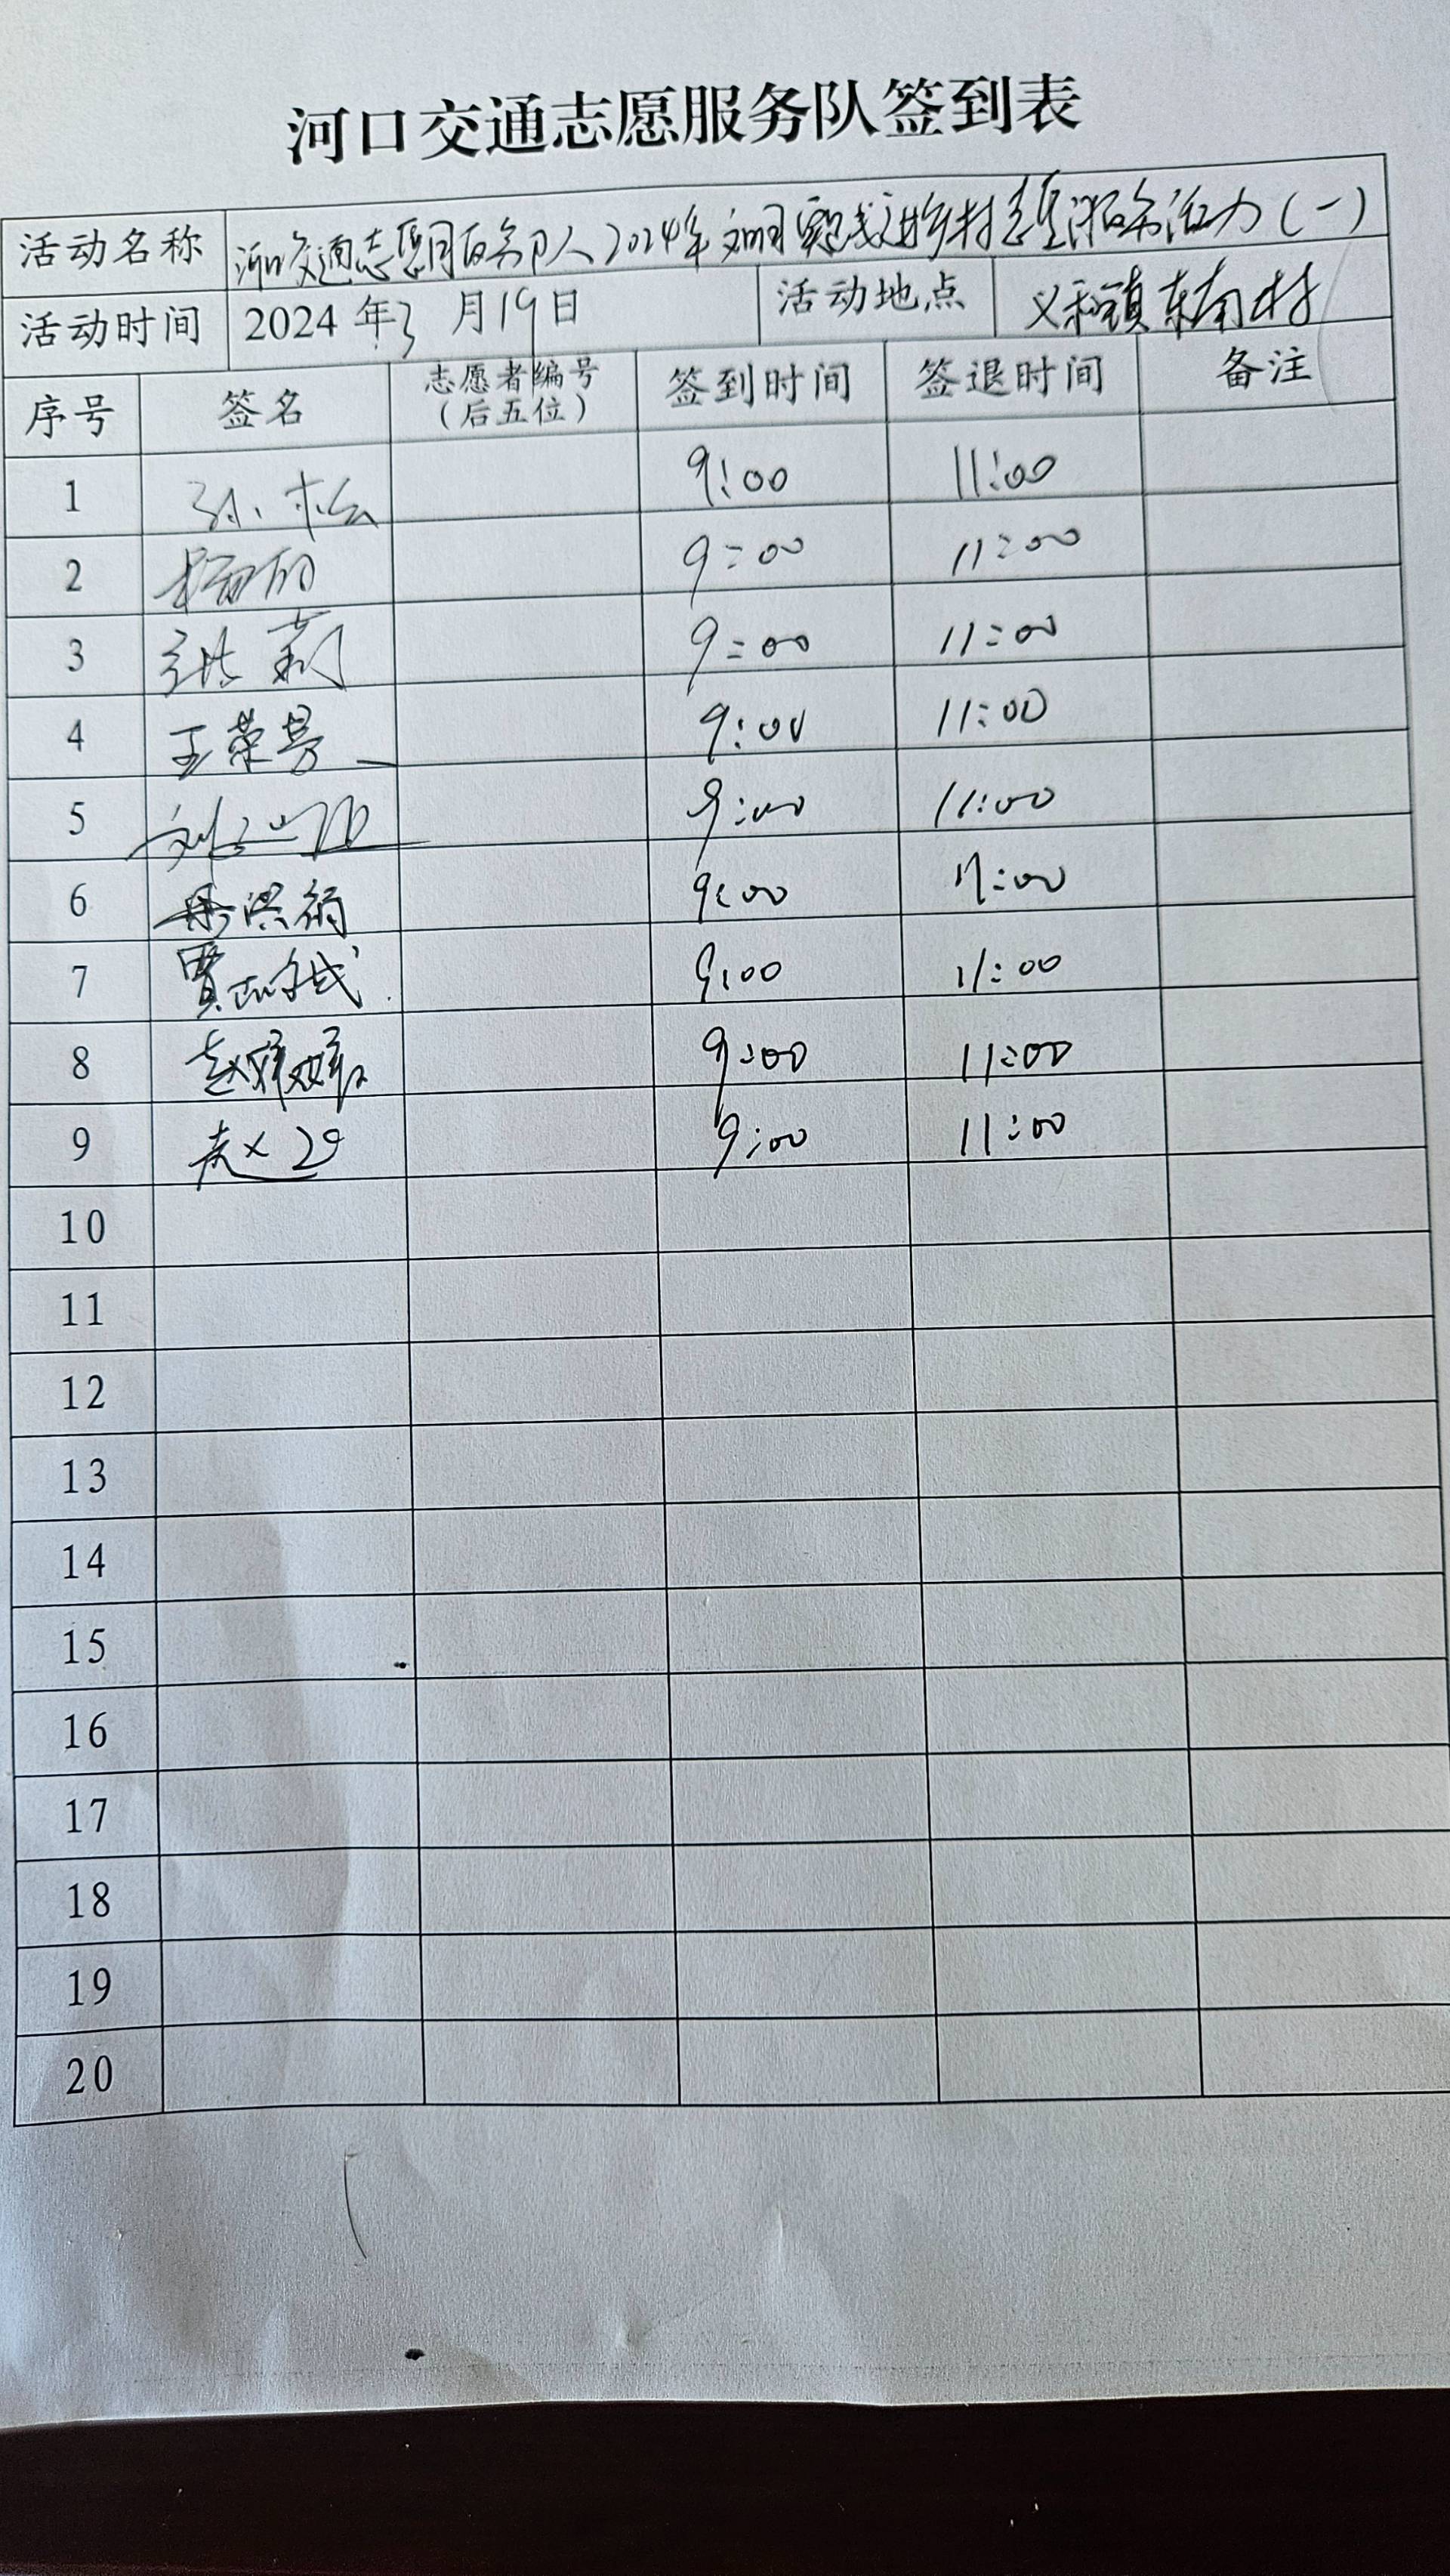 河口交通志愿服务队签到表
活动名称 河口交通志愿服务队2024年文明实践进乡村志愿服务活动(一)
活动时间 2024年3月19日 活动地点 义和镇东南村
序号 签名 志愿者编号(后五位) 签到时间 签退时间 备注
1 孙松 9:00 11:00
2 9:00 11:00
3 张莉 9:00 11:00
4 王荣 9:00 11:00
5 刘 9:00 11:00
6 9:00 11:00
7 贾 9:00 11:00
8 赵 9:00 11:00
9 赵 9:00 11:00
10
11
12
13
14
15
16
17
18
19
20